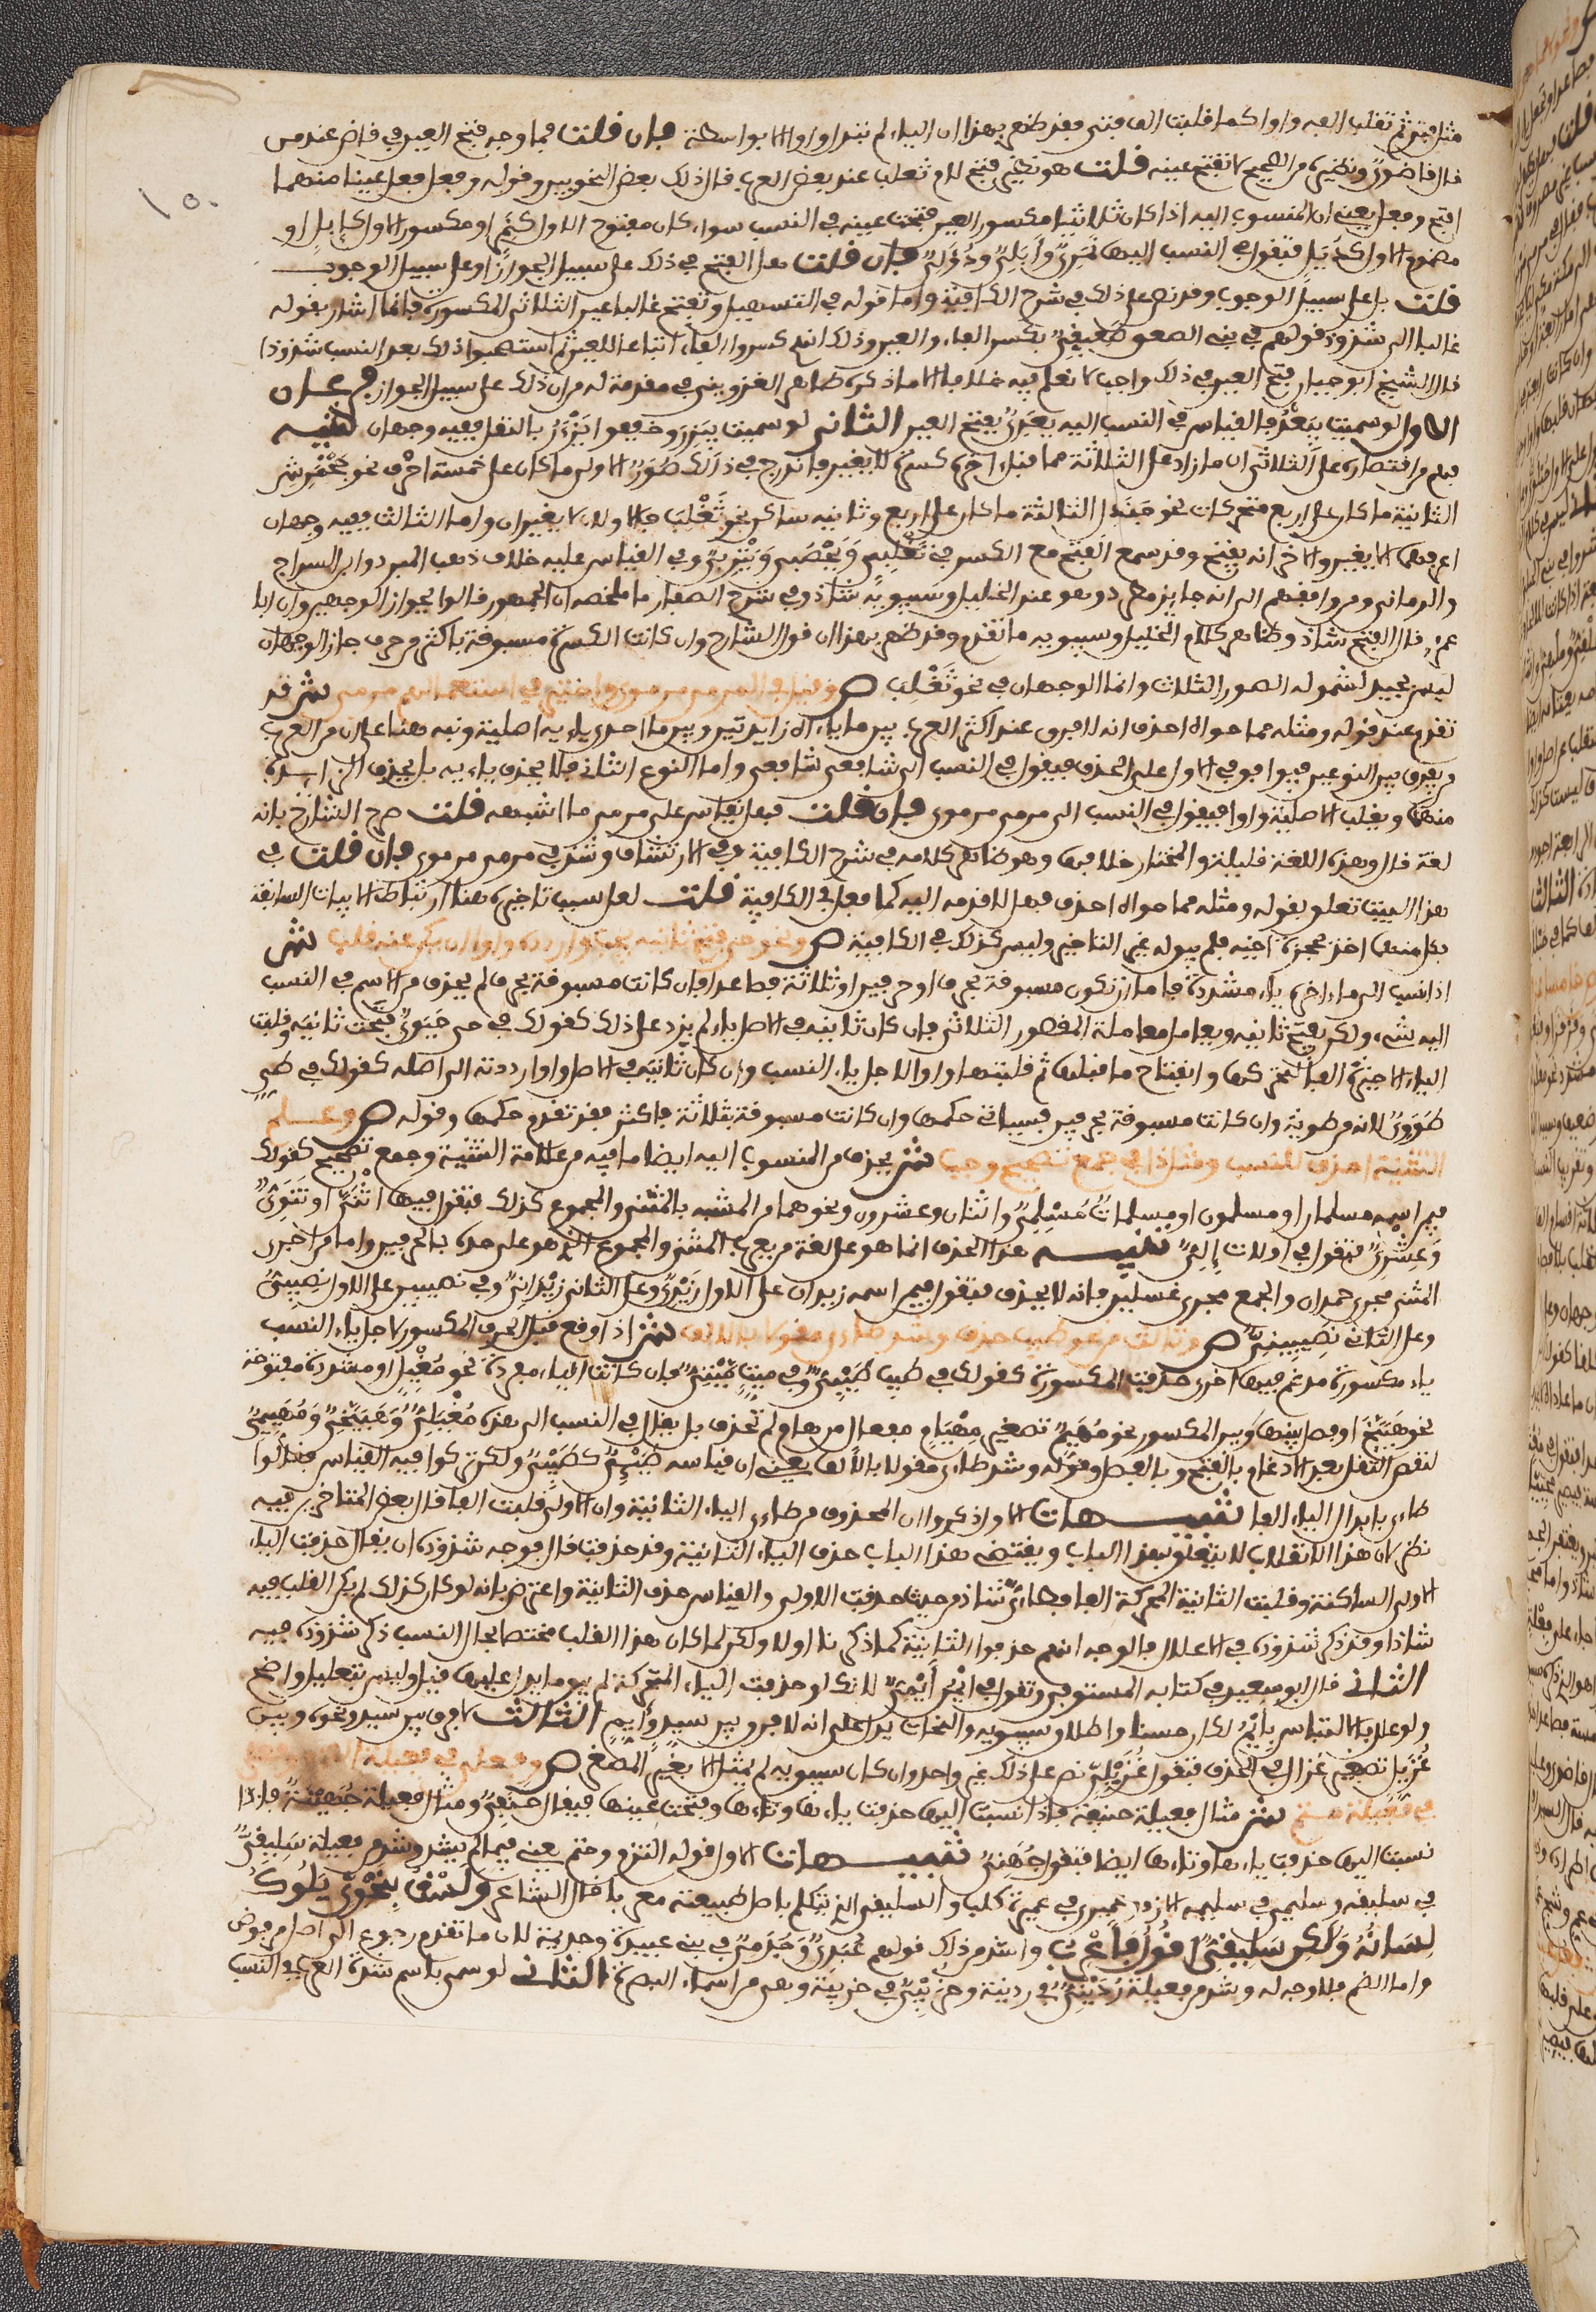 مثل فتى ثم تقلب الفه واوا كما قلبت الف فتى فقد ظهر بهذا ان الياء لم تبدل واوا الا بواسطة فان قلت فما وجه فتح العين في قاض عند من
قال قاضوي ونظيره من الصحيح لا تفتح عينه قلت هو نظير فتح لام تغلب عند بعض العرب قال ذلك بعض النحويين وقوله وفعل وفعل عينا منهما
افتح وفعل يعني ان المنسوب اليه اذا كان ثلاثيا مكسور العين فتحت عينه في النسب سواء كان مفتوح الاول كنمر او مكسور الاول كإبل او
مضموم الاول كدئل فتقول في النسب اليها نمري وإبلي ودؤلي فان قلت هل الفتح في ذلك على سبيل الجواز او على سبيل الوجوب
قلت بل على سبيل الوجوب وقد نص على ذلك في شرح الكافية واما قوله في التسهيل وتفتح غالبا عين الثلاثي المكسورة فانما اشار بقوله
غالبا الى شذوذ قولهم في بني الصعق صعقي بكسر الفاء والعين وذلك انهم كسروا الفاء اتباعا للعين ثم استصحبوا ذلك بعد النسب شذوذا
قال الشيخ ابو حيان فتح العين في ذلك واجب لا نعلم فيه خلافا الا ما ذكره طاهر القزويني في مقدمة له من ان ذلك على سبيل الجواز فرعان
الاول لو سميت بيعد فالقياس في النسب اليه يعدي بفتح العين الثاني لو سميت بيزر مخفف يزئر بالنقل ففيه وجهان تنبيه
فهم من اقتصاره على الثلاثي ان ما زاد على الثلاثة مما قبل اخره كسرة لا يغير فاندرج في ذلك صور الاولى ما كان على خمسة احرف نحو جحمرش
الثانية ما كان على اربع متحركات نحو جندل الثالثة ما كان على اربع وثانيه ساكن نحو تغلب فالاولان لا يغيران واما الثالث ففيه وجهان
اعرفهما الا يغير والاخر انه يفتح وقد سمع الفتح مع الكسر في تغلبي ويحصبي ويثربي وفي القياس عليه خلاف ذهب المبرد وابن السراج
والرماني ومن وافقهم الى انه جايز مطرد وهو عند الخليل وسيبويه شاذ وفي شرح الصفار ما ملخصه ان الجمهور قالوا بجواز الوجهين وان ابا
عمر قال الفتح شاذ وظاهر كلام الخليل وسيبويه ما تقدم وقد ظهر بهذا ان قول الشارح وان كانت الكسرة مسبوقة باكثر من حرف جاز الوجهان
ليس بجيد لشموله الصور الثلاث وانما الوجهان في نحو تغلب ص وقيل في المرمي مرموي واختير في استعمالهم مرمي ش قد
تقدم عند قوله ومثله مما حواه احذف انه لا فرق عند اكثر العرب بين ما ياءاه زايدتين وبين ما احدى ياءيه اصلية ونبه هنا على ان من العرب
من يفرق بين النوعين فيوافق في الاول على الحذف فيقول في النسب الى شافعي شافعي واما النوع الثاني فلا يحذف ياءيه بل يحذف الزايدة
منهما ويقلب الاصلية واوا فيقول في النسب الى مرمي مرموي فان قلت فهل يقاس على مرمي ما اشبهه قلت صرح الشارح بانه
لغة قال وهذه اللغة قليلة والمختار خلافها وهو ظاهر كلامه في شرح الكافية وفي الارتشاف وشذ في مرمي مرموي فان قلت في
هذا البيت تعلق بقوله ومثله مما حواه احذف فهلا قدمه اليه كما فعل في الكافية قلت لعل سبب تاخيره هنا ارتباط الابيات السابقة
بعضها اخذ بحجزة اخيه فلم يبق له غير التاخير وليس كذلك في الكافية ص ونحو حي فتح ثانيه يجب واردده واوا ان يكن عنه قلب ش
اذا نسب الى ما اخره ياء مشددة فاما ان تكون مسبوقة بحرف او حرفين او ثلاثة فصاعدا فان كانت مسبوقة بحرف لم يحذف من الاسم في النسب
اليه شيء ولكن يفتح ثانيه ويعامل معاملة المقصور الثلاثي فان كان ثانيه في الاصل ياء لم يزد على ذلك كقولك في حي حيوي فتحت ثانيه وقلبت
الياء الاخيرة الفا لتحركها وانفتاح ما قبلها ثم قلبتها واوا لاجل ياء النسب وان كان ثانيه في الاصل واوا رددته الى اصله كقولك في طي
طووي لانه من طويت وان كانت مسبوقة بحرفين فسياتي حكمها وان كانت مسبوقة بثلاثة فاكثر فقد تقدم حكمها وقوله ص وعلم
التثنية احذف للنسب ومثل ذا في جمع تصحيح وجب ش يحذف من المنسوب اليه ايضا ما فيه من علامة التثنية وجمع تصحيح كقولك
فيمن اسمه مسلمان او مسلمون او مسلمات مسلمي واثنان وعشرون ونحوهما من المشبه بالمثنى والمجموع كذلك فتقول فيهما اثني او ثنوي
وعشري فتقول في اولات إلي تنبيه هذا الحذف انما هو على لغة من يعرب المثنى والمجموع الذي هو على حده بالحرفين واما من اجرى
المثنى مجرى حمدان والجمع مجرى غسلين فانه لا يحذف فتقول فيمن اسمه زيدان على الاول زيدي وعلى الثاني زيداني وفي نصيبين على الاول نصيبي
وعلى الثاني نصيبيني ص وثالث من نحو طيب حذف وشذ طاءي مقولا بالالف ش اذا وقع قبل الحرف المكسور لاجل ياء النسب
ياء مكسورة مدغم فيها اخرى حذفت المكسورة كقولك في طيب طيبي وفي ميت ميتي فان كانت الياء مفردة نحو مغيل او مشددة مفتوحة
نحو هبيخ او فصل بينها وبين المكسور نحو مهييم تصغير مهيام مفعال من هام لم تحذف بل يقال في النسب الى هذه مغيلي وهبيخي ومهييمي
لنقص الثقل بعدم الادغام بالفتح وبالفصل وقوله وشذ طاءي مقولا بالالف يعني ان قياسه طيئي كطيبي ولكن تركوا فيه القياس فقالوا
طاءي بابدال الياء الفا تنبيهات الاول ذكروا ان المحذوف من طاءي الياء الثانية وان الاولى قلبت الفا قال بعض المتاخرين فيه
نظر لان هذا الانقلاب لا يتعلق بهذا الباب ويقتضي هذا الباب حذف الياء الثانية وقد حذفت قال فوجه شذوذه ان يقال حذفت الياء
الاولى الساكنة وقلبت الثانية المتحركة الفا فطاءي شاذ من حيث حذفت الاولى والقياس حذف الثانية واعترض بانه لو كان كذلك لم يكن القلب فيه
شاذا وقد ذكر شذوذه في الاعلال فالوجه انهم حذفوا الثانية كما ذكرنا اولا ولكن لما كان هذا القلب مختصا بحال النسب ذكر شذوذه فيه
الثاني قال ابو سعيد في كتابه المستوفى وتقول في ايم ايمي لانك لو حذفت الياء المتحركة لم يبق ما يدل عليها قيل وليس بتعليل واضح
ولو علل بالالتباس بايم لكان حسنا واطلاق سيبويه والنحاة يدل على انه لا فرق بين سيد وايم الثالث لا فرق بين سيد ونحوه وبين
غزيل تصغير غزال في الحذف فتقول غزيلي نص على ذلك غير واحد وان كان سيبويه لم يمثل الا بغير المصغر ص وفعلي في فعيلة التزم وفعلي
في فعيلة حتم ش مثال فعيلة حنيفة فاذا نسبت اليها حذفت ياءها وتاءها وفتحت عينها فيقال حنفي ومثال فعيلة جهينة فاذا
نسبت اليها حذفت ياءها وتاءها ايضا فتقول جهني تنبيهات الاول قوله التزم وحتم يعني فيما لم يشذ وشذ من فعيلة سليقي
في سليقة وسليمي في سليمة الازد وعميري في عميرة كلب والسليقي الذي يتكلم باصل طبيعته معربا قال الشاعر ولست بنحوي يلوك
لسانه ولكن سليقي اقول فاعرب واشذ من ذلك قولهم عبدي وجذمي في بني عبيدة وجذيمة لان ما تقدم رجوع الى اصل مرفوض
واما الضم فلا وجه له وشذ من فعيلة رديني في ردينة وخزيبي في خزيبة وهي من اسماء البصرة الثاني لو سمي باسم شذت العرب في النسب